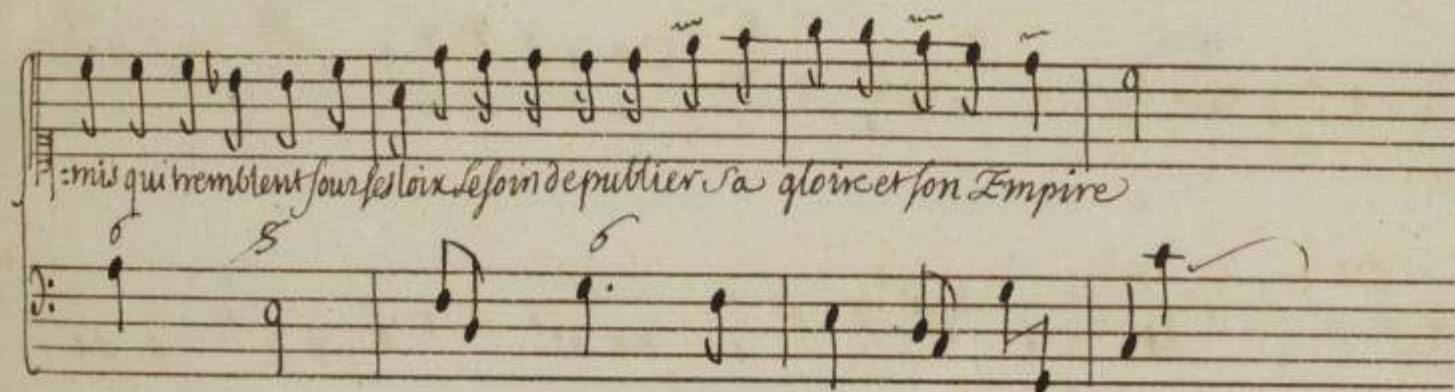 :mis qui tremblent sour ses loix Le soin de publier sa gloire et son Empire
6 5 6